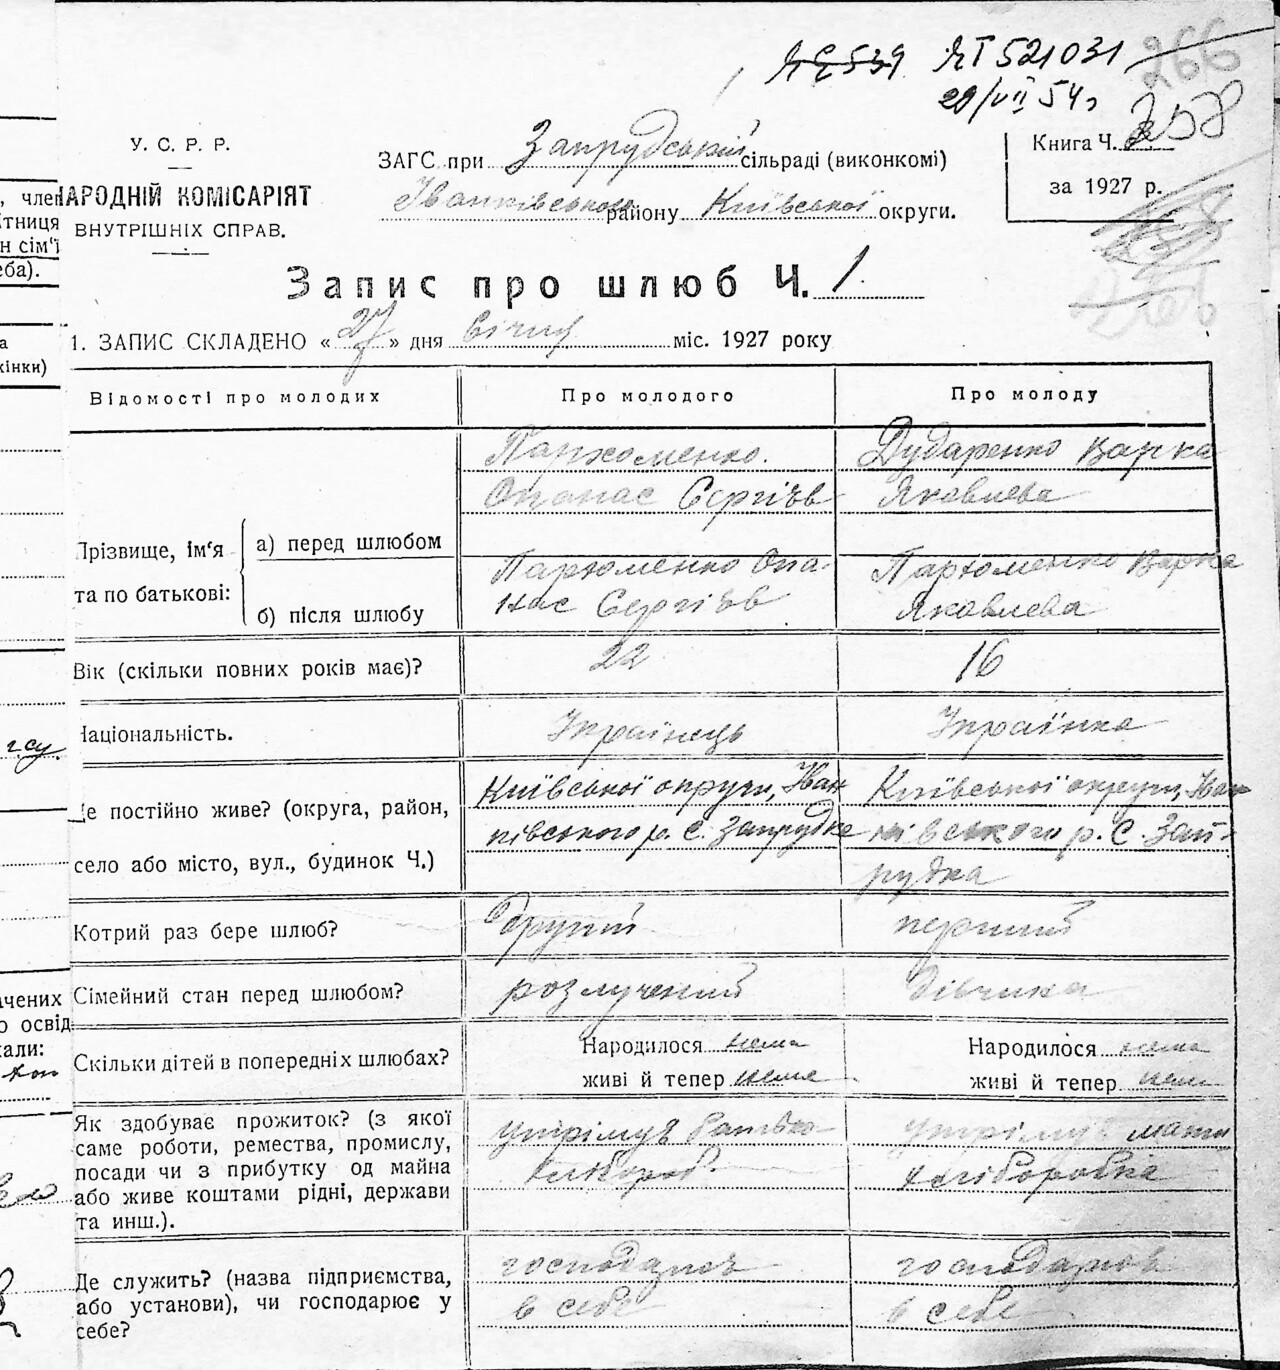 ЯЄ539 ЯТ521031 266
29/VII 54 г 258
У. С. Р. Р.
НАРОДНІЙ КОМІСАРІЯТ
ВНУТРІШНІХ СПРАВ.
ЗАГС при Запрудській сільраді (виконкомі)
Іванківського району Київської округи.
Книга Ч.
за 1927 р.
Запис про шлюб Ч. 1
1. ЗАПИС СКЛАДЕНО « 27 » дня січня міс. 1927 року
Відомості про молодих
Про молодого
Про молоду
Прізвище, ім'я
та по батькові:
а) перед шлюбом
Пархоменко.
Опанас Сергієв
Дударенко Варка
Яковлева
б) після шлюбу
Пархоменко Опа-
нас Сергієв
Пархоменко Варка
Яковлева
Вік (скільки повних років має)?
22
16
Національність.
Українець
Українка
Де постійно живе? (округа, район,
село або місто, вул., будинок Ч.)
Київської округи, Іван
ківського р. С. Запрудка
Київської округи, Іван
ківського р. С. Зап-
рудка
Котрий раз бере шлюб?
другий
перший
Сімейний стан перед шлюбом?
розлучений
дівчина
Скільки дітей в попередніх шлюбах?
Народилося нема
живі й тепер нема
Народилося нема
живі й тепер нема
Як здобуває прожиток? (з якої
саме роботи, ремества, промислу,
посади чи з прибутку од майна
або живе коштами рідні, держави
та инш.).
утрімує батько
хлібороб.
утрімує мати
хліборобка
Де служить? (назва підприємства,
або установи), чи господарює у
себе?
господарює
в себе
господарює
в себе